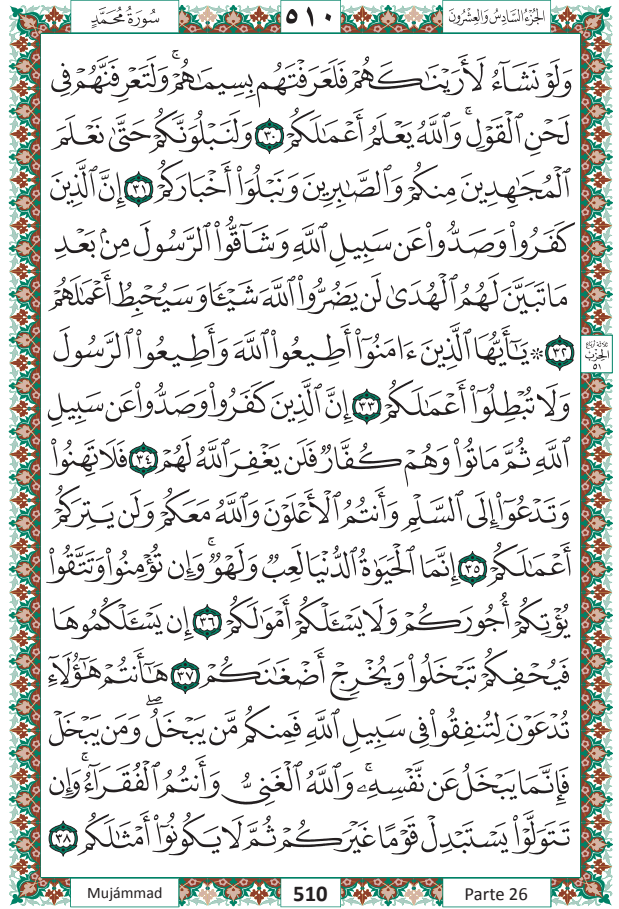 سُورَةُ مُحَمَّدٍ ٥١٠ الجُزْءُ السَّادِسُ وَالعِشْرُونَ
وَلَوْ نَشَآءُ لَأَرَيْنَٰكَهُمْ فَلَعَرَفْتَهُم بِسِيمَٰهُمْۚ وَلَتَعْرِفَنَّهُمْ فِى
لَحْنِ ٱلْقَوْلِۚ وَٱللَّهُ يَعْلَمُ أَعْمَٰلَكُمْ ٣٠ وَلَنَبْلُوَنَّكُمْ حَتَّىٰ نَعْلَمَ
ٱلْمُجَٰهِدِينَ مِنكُمْ وَٱلصَّٰبِرِينَ وَنَبْلُوَا۟ أَخْبَارَكُمْ ٣١ إِنَّ ٱلَّذِينَ
كَفَرُوا۟ وَصَدُّوا۟ عَن سَبِيلِ ٱللَّهِ وَشَآقُّوا۟ ٱلرَّسُولَ مِنۢ بَعْدِ
مَا تَبَيَّنَ لَهُمُ ٱلْهُدَىٰ لَن يَضُرُّوا۟ ٱللَّهَ شَيْـًٔا وَسَيُحْبِطُ أَعْمَٰلَهُمْ
٣٢ ۞ يَٰٓأَيُّهَا ٱلَّذِينَ ءَامَنُوٓا۟ أَطِيعُوا۟ ٱللَّهَ وَأَطِيعُوا۟ ٱلرَّسُولَ
ثلاثة أرباع
الحِزْب
٥١
وَلَا تُبْطِلُوٓا۟ أَعْمَٰلَكُمْ ٣٣ إِنَّ ٱلَّذِينَ كَفَرُوا۟ وَصَدُّوا۟ عَن سَبِيلِ
ٱللَّهِ ثُمَّ مَاتُوا۟ وَهُمْ كُفَّارٌ فَلَن يَغْفِرَ ٱللَّهُ لَهُمْ ٣٤ فَلَا تَهِنُوا۟
وَتَدْعُوٓا۟ إِلَى ٱلسَّلْمِ وَأَنتُمُ ٱلْأَعْلَوْنَ وَٱللَّهُ مَعَكُمْ وَلَن يَتِرَكُمْ
أَعْمَٰلَكُمْ ٣٥ إِنَّمَا ٱلْحَيَوٰةُ ٱلدُّنْيَا لَعِبٌ وَلَهْوٌۚ وَإِن تُؤْمِنُوا۟ وَتَتَّقُوا۟
يُؤْتِكُمْ أُجُورَكُمْ وَلَا يَسْـَٔلْكُمْ أَمْوَٰلَكُمْ ٣٦ إِن يَسْـَٔلْكُمُوهَا
فَيُحْفِكُمْ تَبْخَلُوا۟ وَيُخْرِجْ أَضْغَٰنَكُمْ ٣٧ هَٰٓأَنتُمْ هَٰٓؤُلَآءِ
تُدْعَوْنَ لِتُنفِقُوا۟ فِى سَبِيلِ ٱللَّهِ فَمِنكُم مَّن يَبْخَلُۖ وَمَن يَبْخَلْ
فَإِنَّمَا يَبْخَلُ عَن نَّفْسِهِۦۚ وَٱللَّهُ ٱلْغَنِىُّ وَأَنتُمُ ٱلْفُقَرَآءُۚ وَإِن
تَتَوَلَّوْا۟ يَسْتَبْدِلْ قَوْمًا غَيْرَكُمْ ثُمَّ لَا يَكُونُوٓا۟ أَمْثَٰلَكُم ٣٨
Mujámmad 510 Parte 26